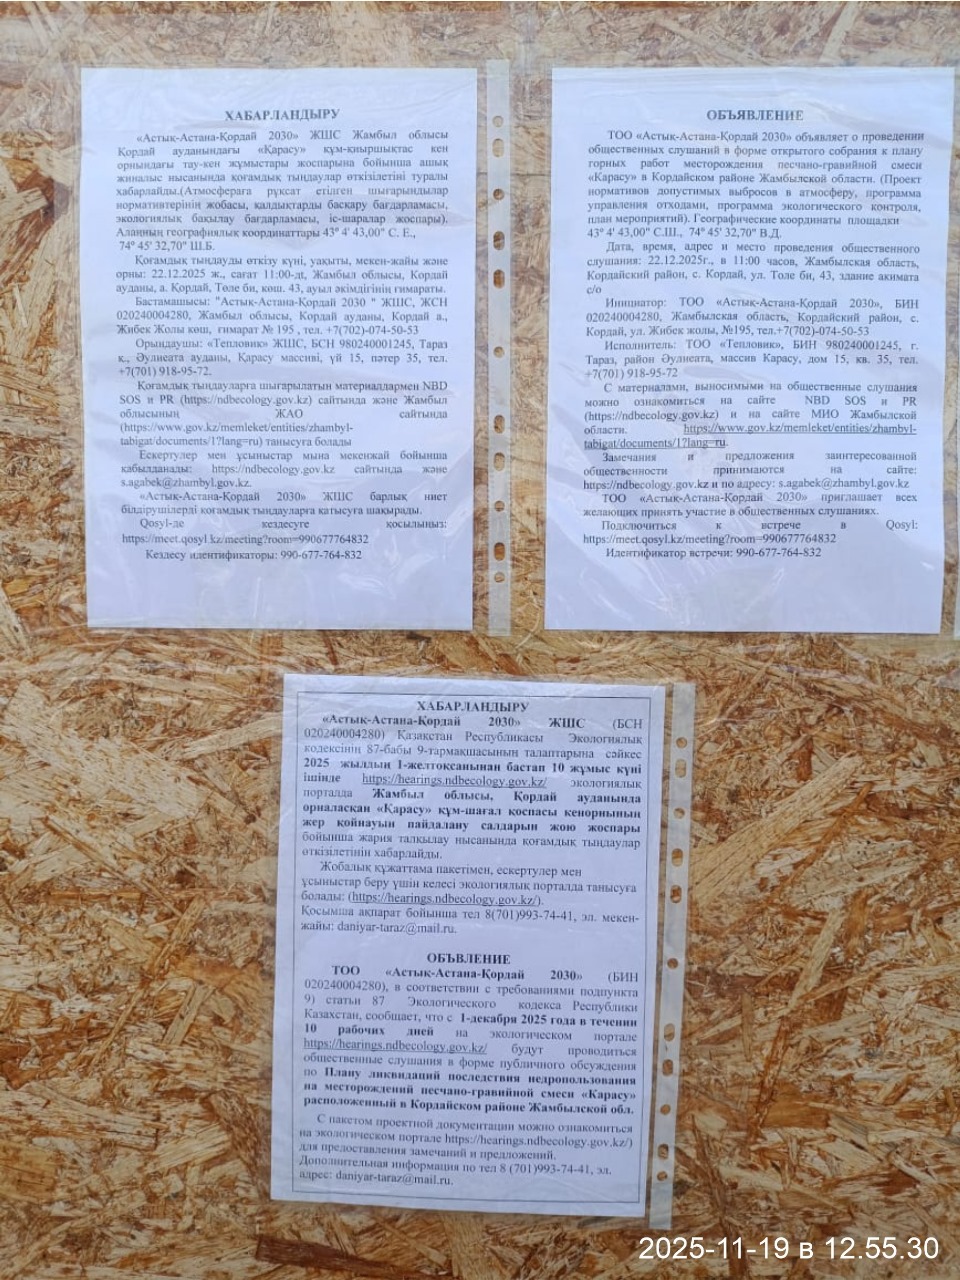 ХАБАРЛАНДЫРУ
«Астық-Астана-Қордай 2030» ЖШС Жамбыл облысы
Қордай ауданындағы «Қарасу» құм-қиыршықтас кен
орнындағы тау-кен жұмыстары жоспарына бойынша ашық
жиналыс нысанында қоғамдық тыңдаулар өткізілетіні туралы
хабарлайды.(Атмосфераға рұқсат етілген шығарындылар
нормативтерінің жобасы, қалдықтарды басқару бағдарламасы,
экологиялық бақылау бағдарламасы, іс-шаралар жоспары).
Алаңның географиялық координаттары 43° 4' 43,00" С. Е.,
74° 45' 32,70" Ш.Б.
Қоғамдық тыңдауды өткізу күні, уақыты, мекен-жайы және
орны: 22.12.2025 ж., сағат 11:00-дт, Жамбыл облысы, Кордай
ауданы, а. Қордай, Төле би, көш. 43, ауыл әкімдігінің ғимараты.
Бастамашысы: "Астық-Астана-Қордай 2030 " ЖШС, ЖСН
020240004280, Жамбыл облысы, Кордай ауданы, Кордай а.,
Жибек Жолы көш, ғимарат № 195 , тел. +7(702)-074-50-53
Орындаушы: «Тепловик» ЖШС, БСН 980240001245, Тараз
қ., Әулиеата ауданы, Қарасу массиві, үй 15, пәтер 35, тел.
+7(701) 918-95-72.
Қоғамдық тыңдауларға шығарылатын материалдармен NBD
SOS и PR (https://ndbecology.gov.kz) сайтында және Жамбыл
облысының ЖАО сайтында
(https://www.gov.kz/memleket/entities/zhambyl-
tabigat/documents/1?lang=ru) танысуға болады
Ескертулер мен ұсыныстар мына мекенжай бойынша
қабылданады: https://ndbecology.gov.kz сайтында және
s.agabek@zhambyl.gov.kz.
«Астық-Астана-Қордай 2030» ЖШС барлық ниет
білдірушілерді қоғамдық тыңдауларға қатысуға шақырады.
Qosyl-де кездесуге қосылыңыз:
https://meet.qosyl.kz/meeting?room=990677764832
Кездесу идентификаторы: 990-677-764-832
ОБЪЯВЛЕНИЕ
ТОО «Астық-Астана-Қордай 2030» объявляет о проведении
общественных слушаний в форме открытого собрания к плану
горных работ месторождения песчано-гравийной смеси
«Карасу» в Кордайском районе Жамбылской области. (Проект
нормативов допустимых выбросов в атмосферу, программа
управления отходами, программа экологического контроля,
план мероприятий). Географические координаты площадки
43° 4' 43,00" С.Ш., 74° 45' 32,70" В.Д.
Дата, время, адрес и место проведения общественного
слушания: 22.12.2025г., в 11:00 часов, Жамбылская область,
Кордайский район, с. Кордай, ул. Толе би, 43, здание акимата
с/о
Инициатор: ТОО «Астық-Астана-Қордай 2030», БИН
020240004280, Жамбылская область, Кордайский район, с.
Кордай, ул. Жибек жолы, №195, тел.+7(702)-074-50-53
Исполнитель: ТОО «Тепловик», БИН 980240001245, г.
Тараз, район Әулиеата, массив Карасу, дом 15, кв. 35, тел.
+7(701) 918-95-72
С материалами, выносимыми на общественные слушания
можно ознакомиться на сайте NBD SOS и PR
(https://ndbecology.gov.kz) и на сайте МИО Жамбылской
области. https://www.gov.kz/memleket/entities/zhambyl-
tabigat/documents/1?lang=ru.
Замечания и предложения заинтересованной
общественности принимаются на сайте:
https://ndbecology.gov.kz и по адресу: s.agabek@zhambyl.gov.kz
ТОО «Астық-Астана-Қордай 2030» приглашает всех
желающих принять участие в общественных слушаниях.
Подключиться к встрече в Qosyl:
https://meet.qosyl.kz/meeting?room=990677764832
Идентификатор встречи: 990-677-764-832
ХАБАРЛАНДЫРУ
«Астық-Астана-Қордай 2030» ЖШС (БСН
020240004280) Қазақстан Республикасы Экологиялық
кодексінің 87-бабы 9-тармақшасының талаптарына сәйкес
2025 жылдың 1-желтоқсанынан бастап 10 жұмыс күні
ішінде https://hearings.ndbecology.gov.kz/ экологиялық
порталда Жамбыл облысы, Қордай ауданында
орналасқан «Қарасу» құм-шағал қоспасы кенорнының
жер қойнауын пайдалану салдарын жою жоспары
бойынша жария талқылау нысанында қоғамдық тыңдаулар
өткізілетінін хабарлайды.
Жобалық құжаттама пакетімен, ескертулер мен
ұсыныстар беру үшін келесі экологиялық порталда танысуға
болады: (https://hearings.ndbecology.gov.kz/).
Қосымша ақпарат бойынша тел 8(701)993-74-41, эл. мекен-
жайы: daniyar-taraz@mail.ru.
ОБЪВЛЕНИЕ
ТОО «Астық-Астана-Қордай 2030» (БИН
020240004280), в соответствии с требованиями подпункта
9) статьи 87 Экологического кодекса Республики
Казахстан, сообщает, что с 1-декабря 2025 года в течении
10 рабочих дней на экологическом портале
https://hearings.ndbecology.gov.kz/ будут проводиться
общественные слушания в форме публичного обсуждения
по Плану ликвидаций последствия недропользования
на месторождений песчано-гравийной смеси «Карасу»
расположенный в Кордайском районе Жамбылской обл.
С пакетом проектной документации можно ознакомиться
на экологическом портале https://hearings.ndbecology.gov.kz/)
для предоставления замечаний и предложений.
Дополнительная информация по тел 8 (701)993-74-41, эл.
адрес: daniyar-taraz@mail.ru.
2025-11-19 в 12.55.30